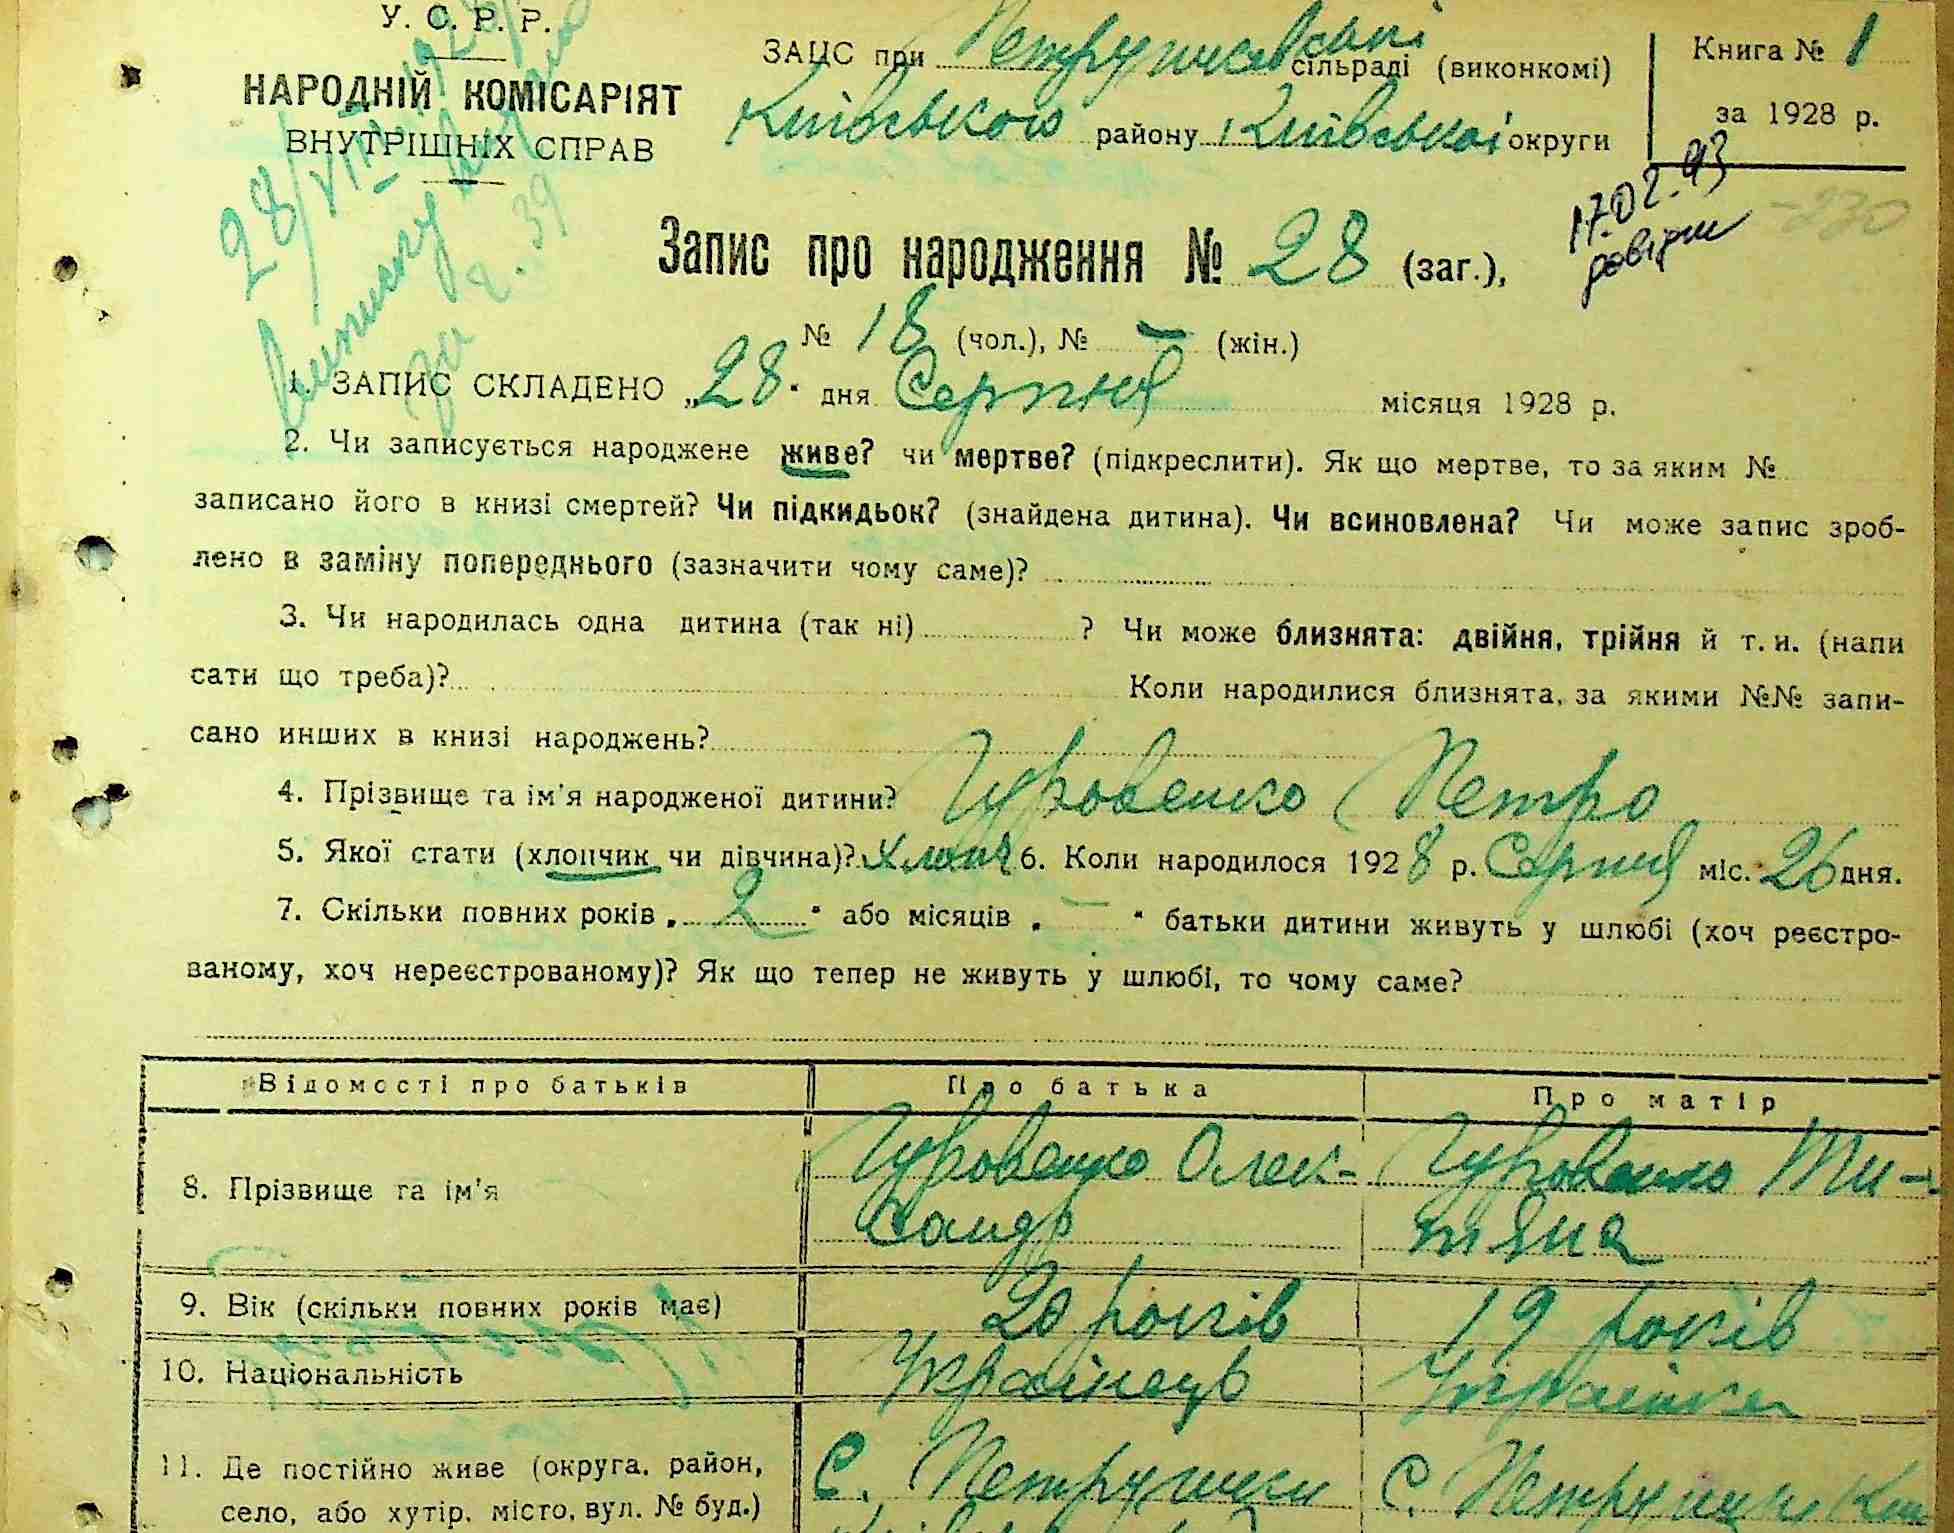 У. С. Р. Р.
НАРОДНІЙ КОМІСАРІЯТ
ВНУТРІШНІХ СПРАВ
ЗАЦС при Петрушківські сільраді (виконкомі)
Київського району Київської округи
Книга № 1
за 1928 р.
28/VIII 1928
Виписку
за 39
17.02.93
довідки
-230
Запис про народження № 28 (заг.),
№ 18 (чол.), № — (жін.)
1. ЗАПИС СКЛАДЕНО „28" дня Серпня місяця 1928 р.
2. Чи записується народжене живе? чи мертве? (підкреслити). Як що мертве, то за яким №
записано його в книзі смертей? Чи підкидьок? (знайдена дитина). Чи всиновлена? Чи може запис зроб-
лено в заміну попереднього (зазначити чому саме)?
3. Чи народилась одна дитина (так ні) ? Чи може близнята: двійня, трійня й т. и. (напи
сати що треба)? Коли народилися близнята, за якими №№ запи-
сано инших в книзі народжень?
4. Прізвище та ім'я народженої дитини? Гуровенко Петро
5. Якої стати (хлопчик чи дівчина)? хлопч 6. Коли народилося 1928 р. Серпня міс. 26 дня.
7. Скільки повних років „ 2 " або місяців „ — " батьки дитини живуть у шлюбі (хоч реєстро-
ваному, хоч нереєстрованому)? Як що тепер не живуть у шлюбі, то чому саме?
Відомості про батьків Про батька Про матір
8. Прізвище та ім'я Гуровенко Олек- Гуровенко Ти-
сандр тяна
9. Вік (скільки повних років має) 20 років 19 років
10. Національність Українець Українка
11. Де постійно живе (округа, район, С. Петрушки С. Петрушки
село, або хутір, місто, вул. № буд.)